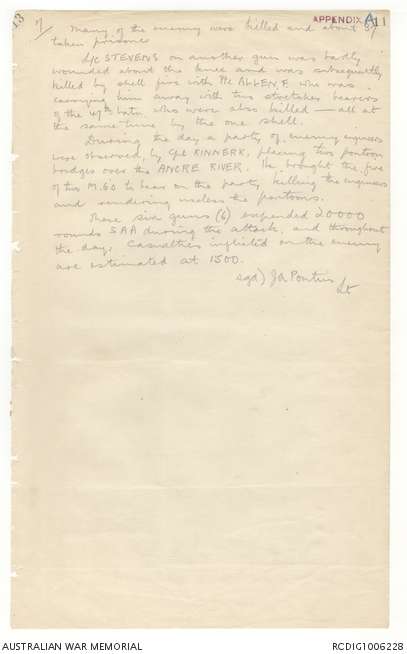 13
7/
APPENDIX A11
Many of the enemy were killed and about 
taken prisoner
L/c STEVENS on another gun was badly
wounded about the knee and was subsequently
killed by shell fire with Pte ALLEN, F. who was
carrying him away with two stretcher bearers
of the 47th Batn. who were also killed — all at
the same time by the one shell.
During the day a party of enemy engineers
were observed, by Cpl KINNERK, placing two pontoon
bridges over the ANCRE RIVER. He brought the fire
of two M.GG to bear on the party killing the engineers
and rendering useless the pontoons.
These six guns (6) expended 20000
rounds SAA during the attack, and throughout
the day. Casualties inflicted on the enemy
are estimated at 1500.
sgd) J A Pontin
Lt
AUSTRALIAN WAR MEMORIAL
RCDIG1006228